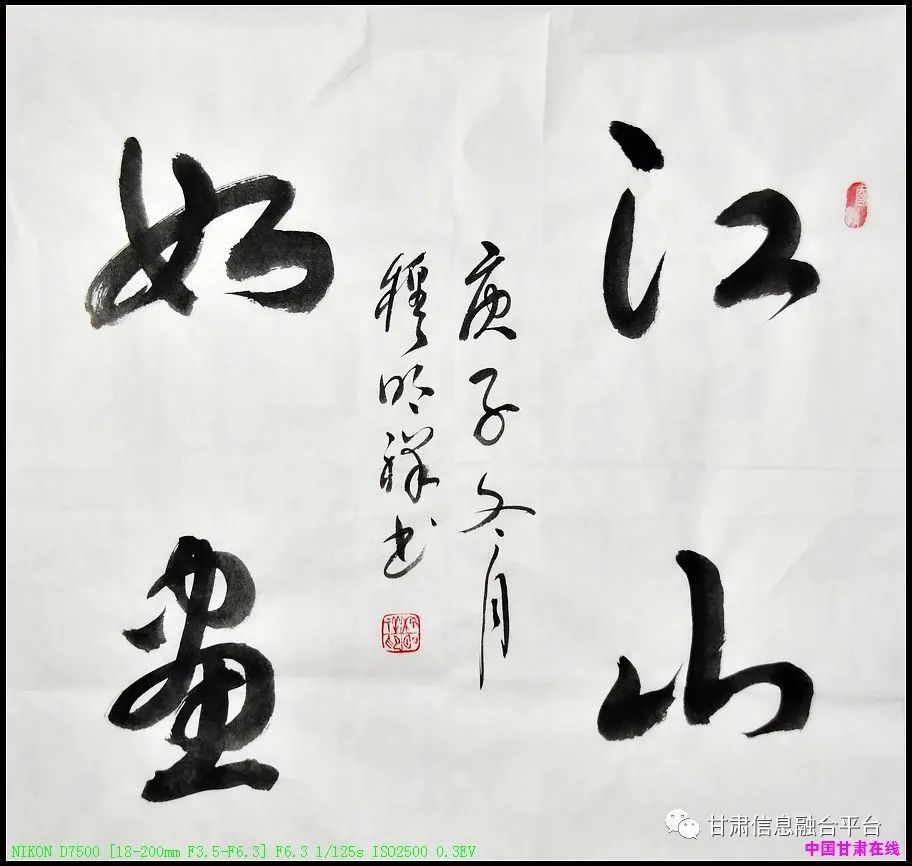 江山
如畫
庚子冬月
程明祥书
甘肃信息融合平台
中国甘肃在线
NIKON D7500 [18-200mm F3.5-F6.3] F6.3 1/125s ISO2500 0.3EV